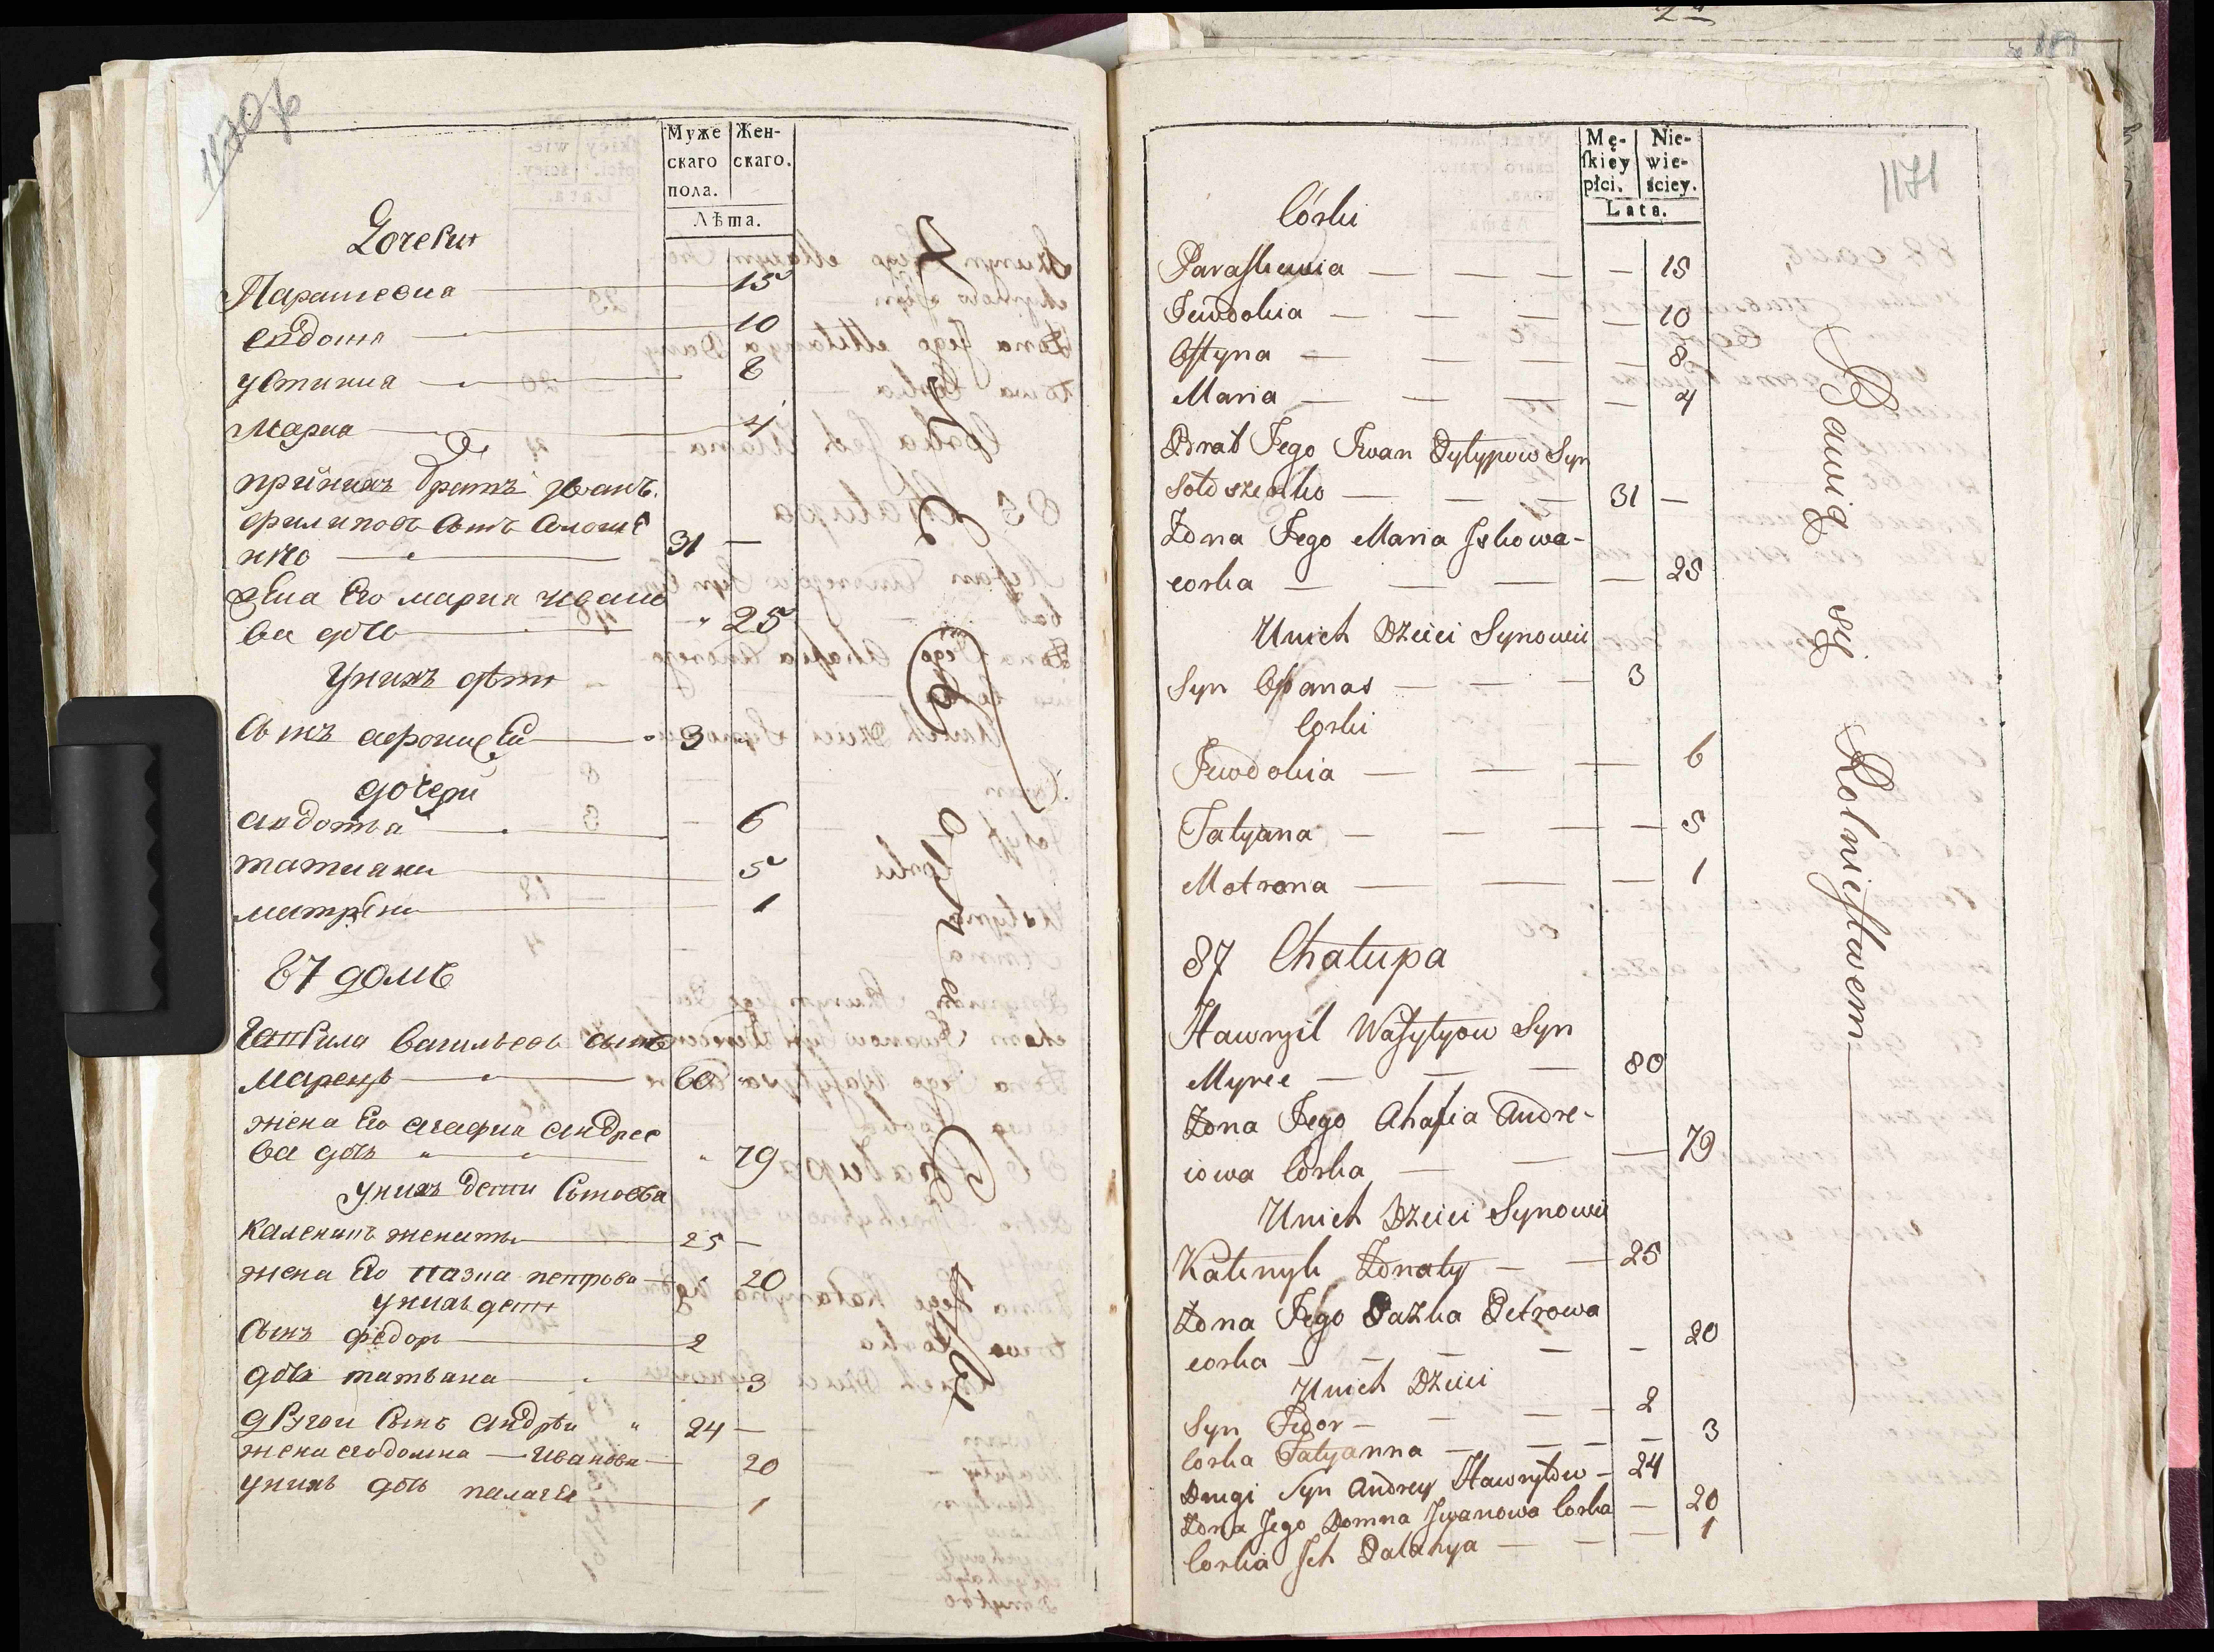 1170об
Муже Жен-
скаго скаго.
пола.
Лѣта.
Дочери
Парашевиа 15
евдокиа 10
устиниа 8
мариа 4
при нихъ братъ иванъ
филиповъ сынъ
нко 31 —
жена Его мариа
ва дочь 25
унихъ дѣти
сынъ афонасей 3
дочери
авдотья 6
татиана 5
матрена 1
87 домъ
Гаврила васильевъ сынъ
марецъ 80
жена Его агафиа андрее
ва дочь 79
унихъ дети Сыновья
каленикъ женаты 25 —
жена Его пазка петрова 20
унихъ дети
Сынъ федоръ 2
дочь татьяна 3
другой Сынъ андрѣй 24 —
жена егодомна — Иванова 20
унихъ дочь палагея 1
1171
Mę- Nie-
skiey wie-
płci. sciey.
Lata.
Córki
Paraskewia — — — — 15
Jewdokia — — — — 10
Ostyna — — — — 8
Maria — — — — 4
Brat Jego Iwan Pylypow Syn
Sołoszenko — — — 31 —
Żona Jego Maria Iskowa-
corka — — — — 25
Unich Dzieci Synowii
Syn Opanas — — — 3
Corki
Jewdokia — — — 6
Tatyana — — — — 5
Motrona — — — 1
87 Chałupa
Hawryił Wasylyow Syn
Myrec — — — 80
Żona Jego Ahafia Andre-
iowa Corka — — — 79
Unich Dzieci Synowii
Kalenyk Żonaty — — 25
Żona Jego Pazka Petrowa
corka — — — — — 20
Unich Dzieci
Syn Fedor — — — — 2
Corka Tatyanna — — — — 3
Drugi Syn Andrey Hawryłow — 24
Żona Jego Domna Iwanowa Corka — 20
Corka Ich Palahya — — — 1
Bawią się Rolnictwem